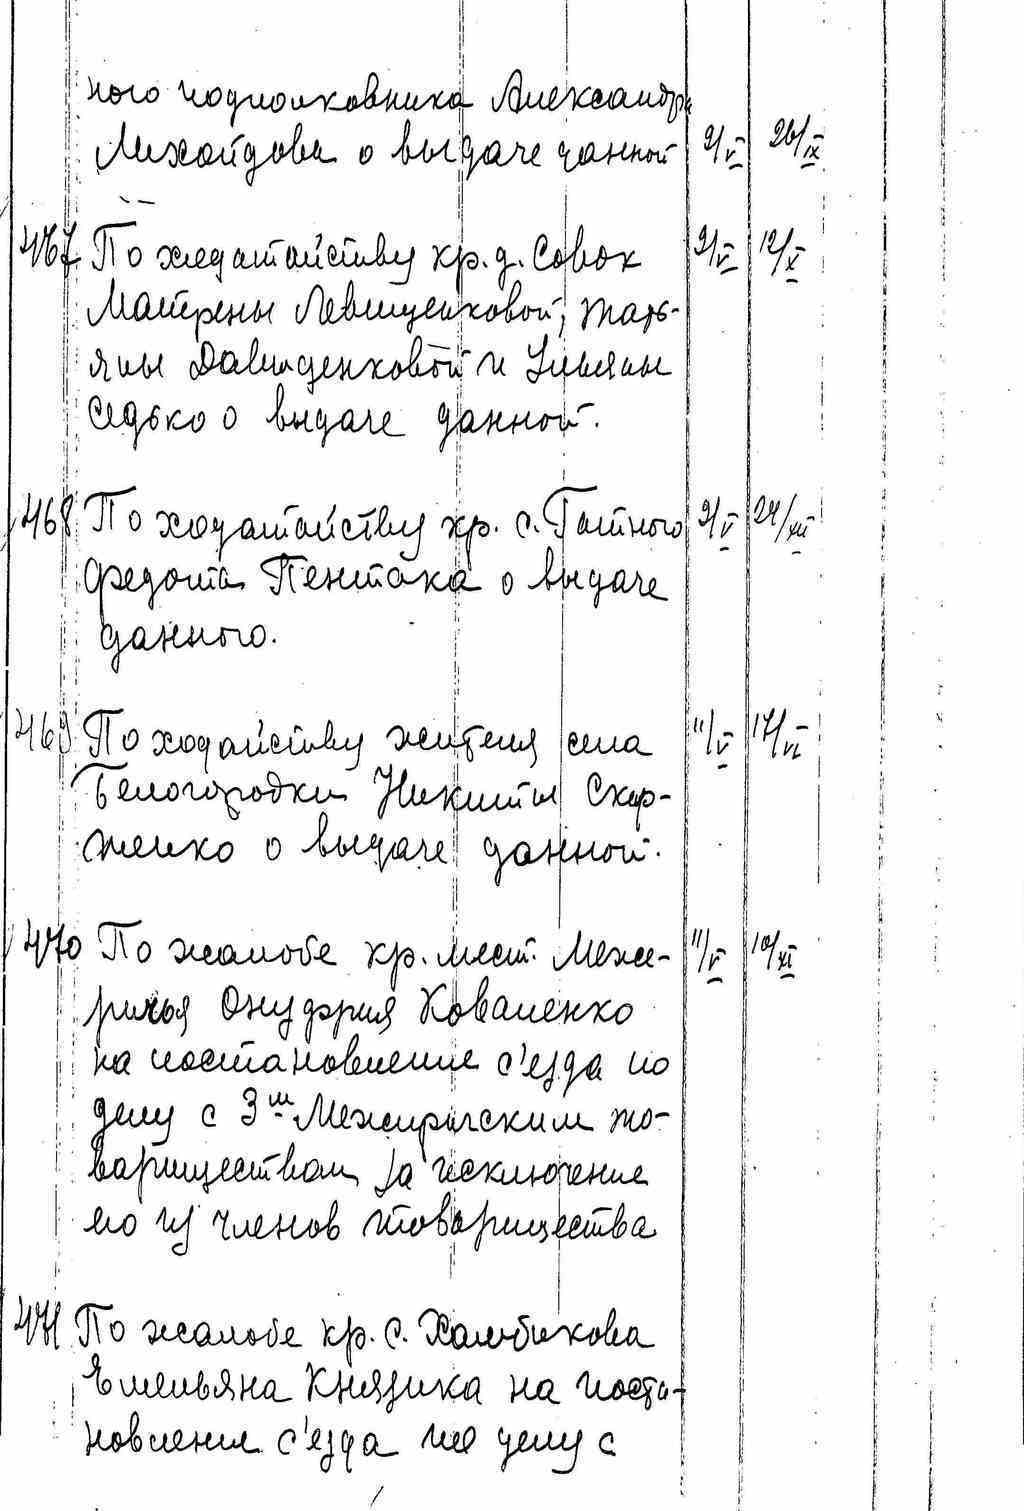 ного подполковника Александра
Михайдова о выдаче данной 9/V 26/IX
467 По ходатайству кр. д. Совок 9/V 12/X
Матрены Левщенковой, Тать-
яны Давиденковой и Ульяны
Седько о выдаче данной.
468 По ходатайству кр. с. Гатного 9/V 24/XII
Федота Пентака о выдаче
данного.
469 По ходайству жителя села 11/V 17/VI
Белогородки Никиты Скор-
женко о выдаче данной.
470 По жалобе кр. мест. Меже- 11/V 10/XI
ричья Онуфрия Коваленко
на постановление с'езда по
делу с 3м Межиричским то-
вариществом за исключение
его из членов товарищества
471 По жалобе кр. с. Халибикова
Емельяна Князика на поста-
новление с'езда по делу с